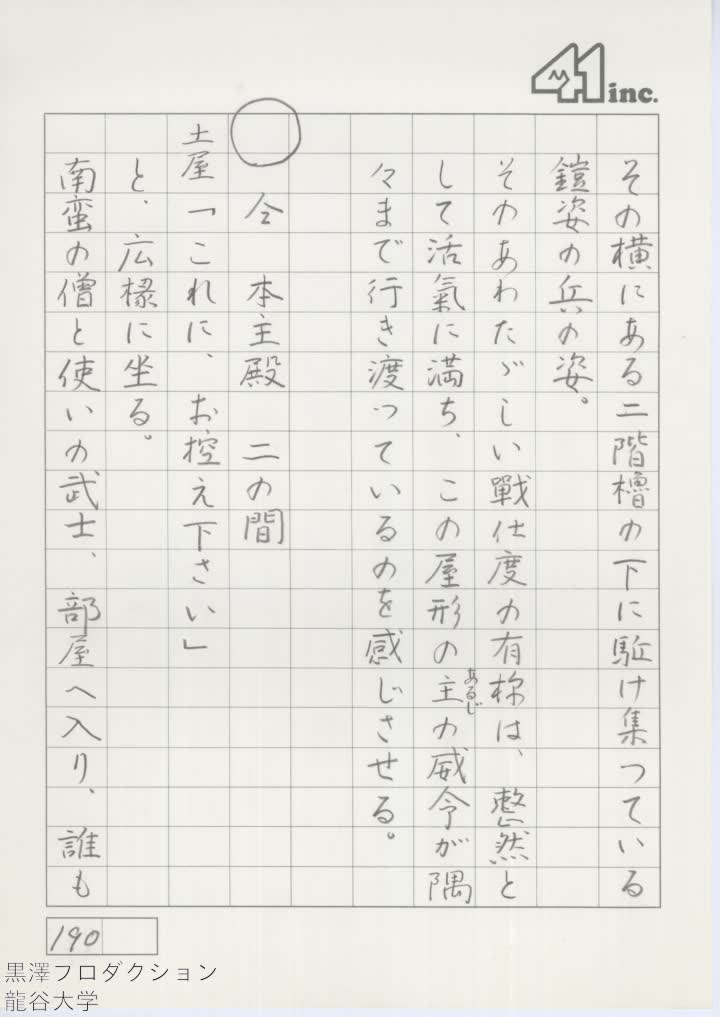 41 inc.
その横にある二階櫓の下に駈け集つている
鎧姿の兵の姿。
そのあわたゞしい戰仕度の有様は、整然と
して活氣に満ち、この屋形の主の威令が隅
あるじ
々まで行き渡つているのを感じさせる。
○　仝　本主殿　二の間
土屋「これに、お控え下さい」
と、広椽に坐る。
南蛮の僧と使いの武士、部屋へ入り、誰も
190
黒澤プロダクション
龍谷大学